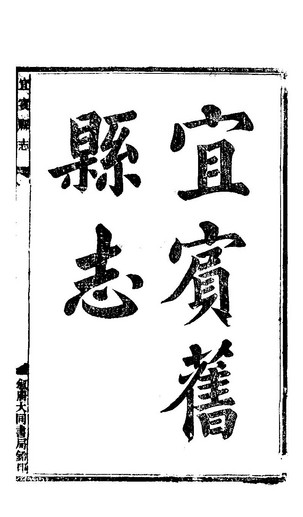 宜賓舊
縣志
宜賓縣志
大同書局鉛印